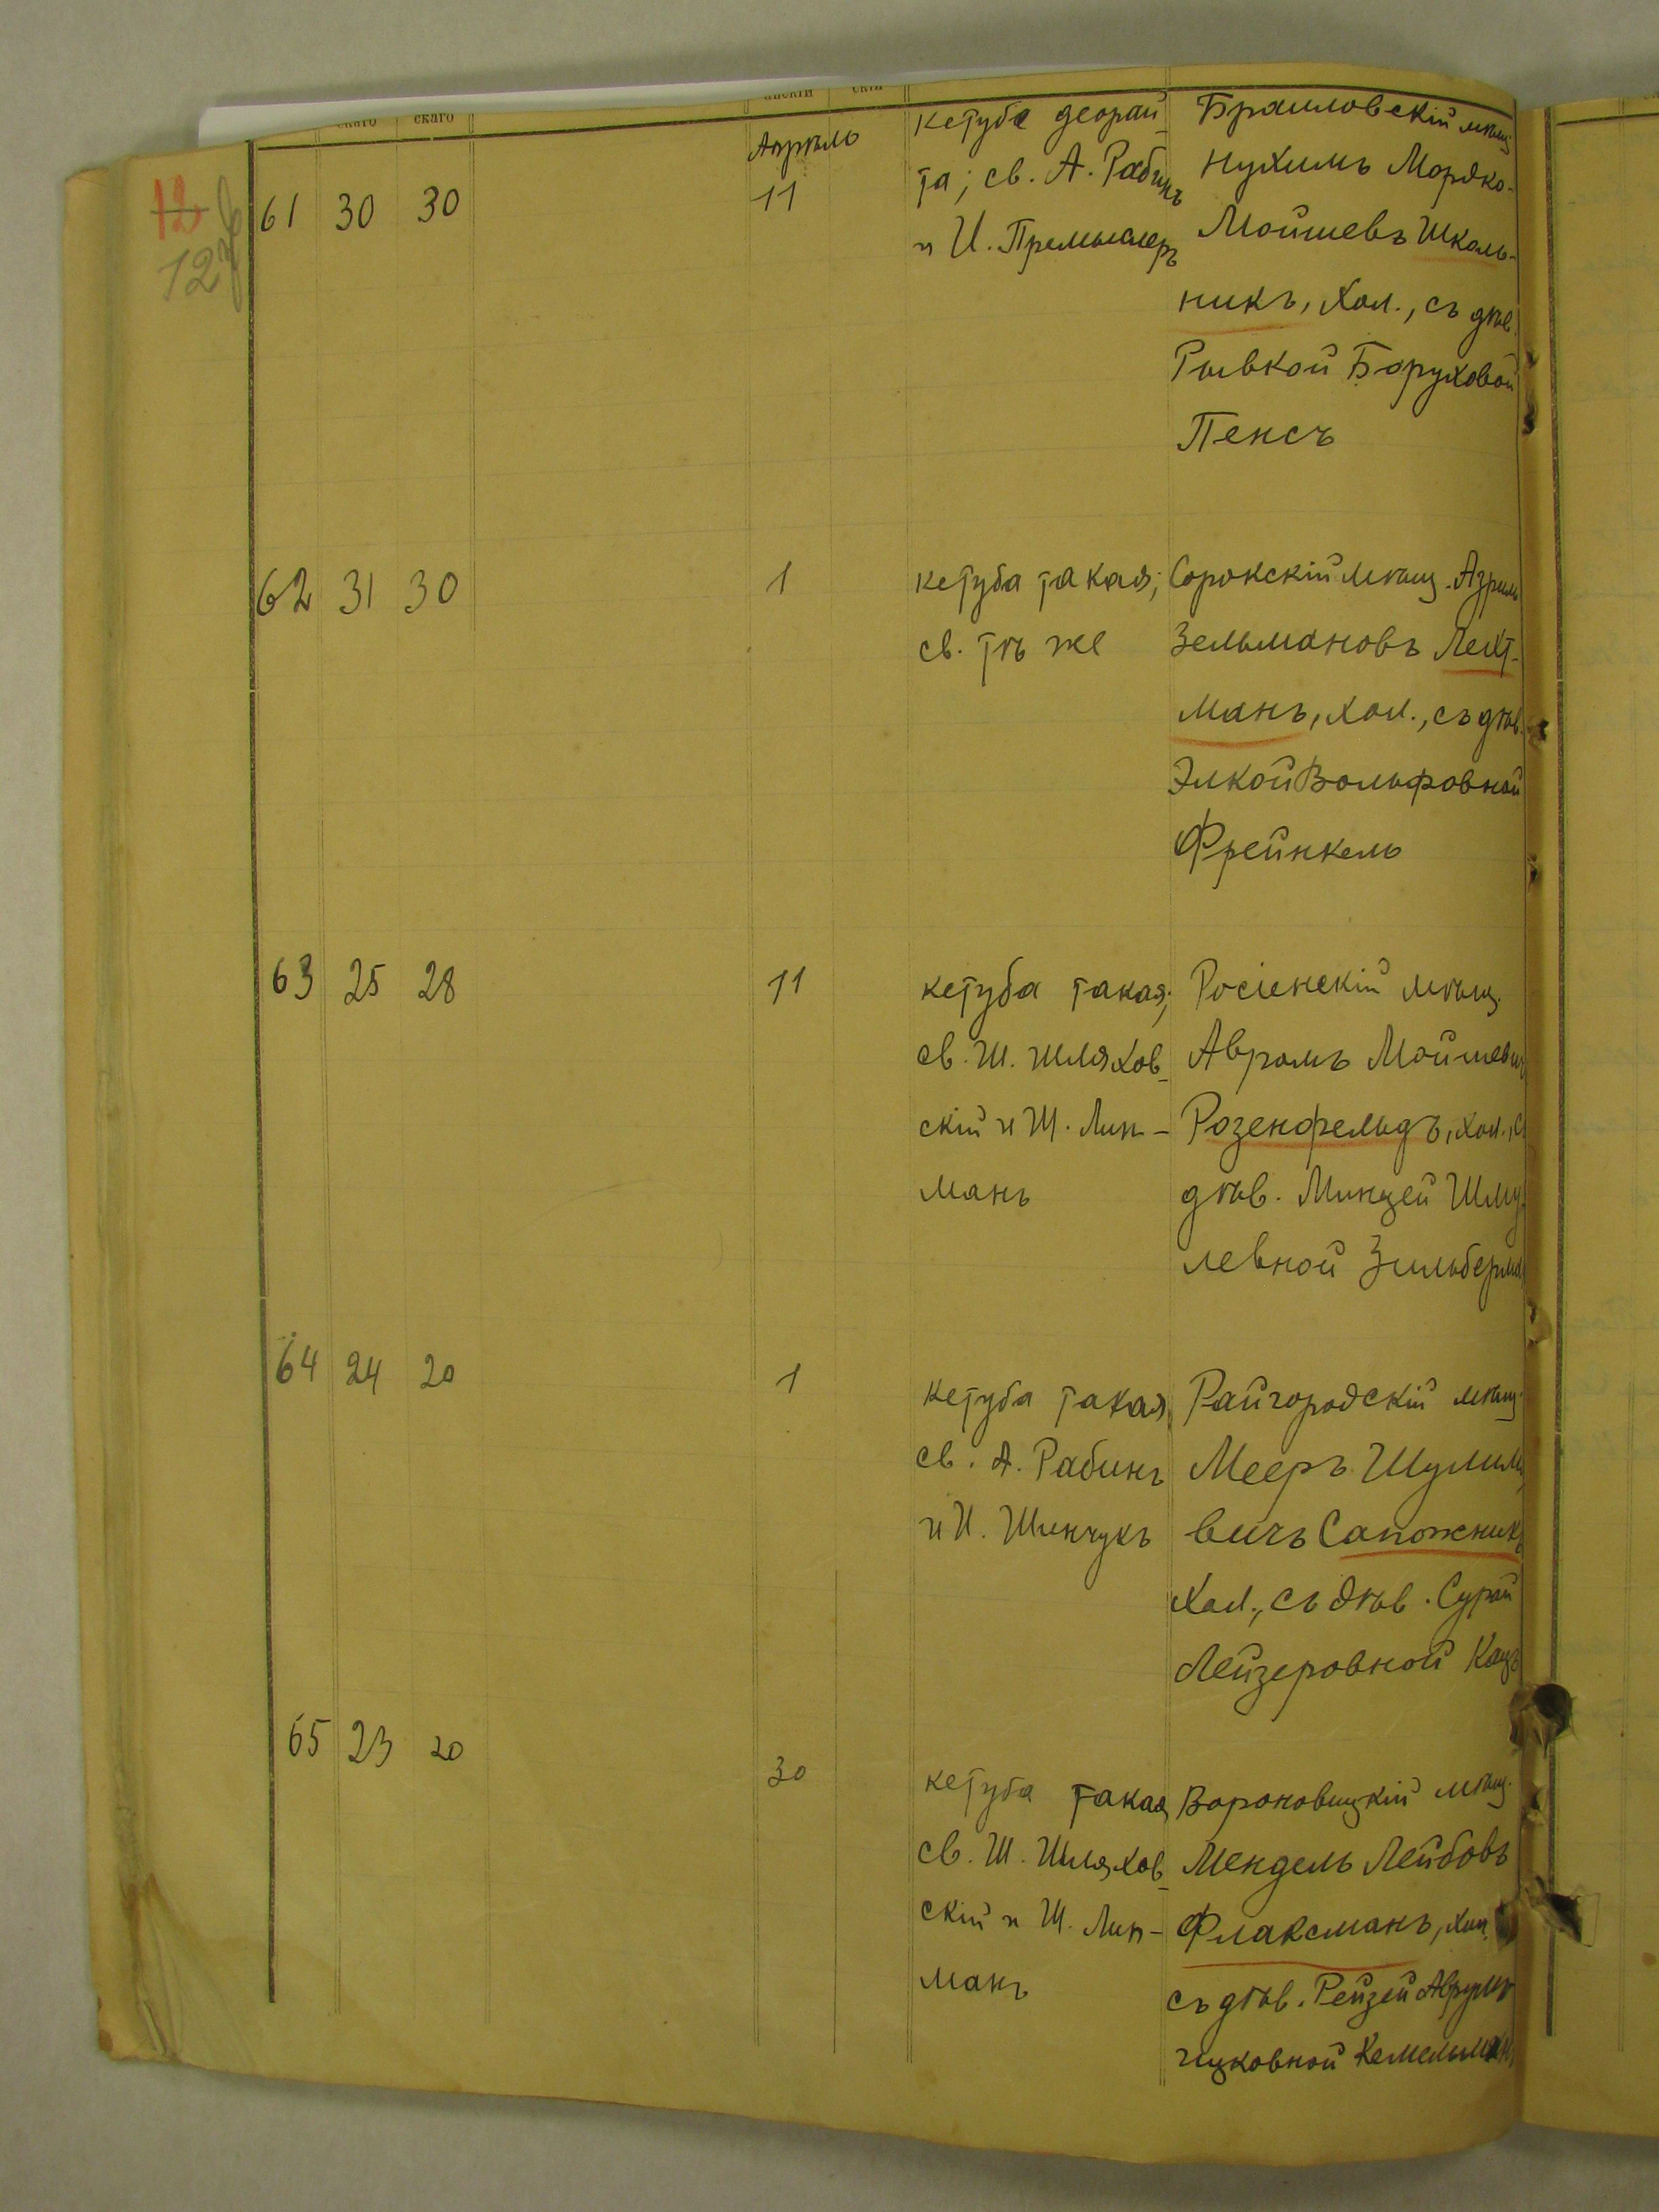 скаго скаго
12
12
Апрѣль
61 30 30 11
кетуба деорай-
та; св. А. Рабинъ
и И. Премыслеръ
Браиловскій мѣщ.
Нухимъ Мордко-
Мошиевъ Школь-
никъ, хол., съ дѣв.
Рывкой Боруховой
Пенсъ
62 31 30 1
кетуба такая;
св. тѣ же
Сорокскій мѣщ. Азриль
Зельмановъ Лехт-
манъ, хол., съ дѣв.
Элкой Вольфовной
Фрейнкель
63 25 28 11
кетуба такая;
св. Ш. Шляхов-
скій и Ш. Лип-
манъ
Росіенскій мѣщ.
Авромъ Мойшевичъ
Розенфельдъ, хол., с
дѣв. Минцей Шму-
левной Зильберма
64 24 20 1
кетуба такая,
св. А. Рабинъ
и И. Шинчукъ
Райгородскій мѣщ.
Мееръ Шулимо
вичъ Сапожникъ
хол., съ дѣв. Сурой
Лейзеровной Кацъ
65 23 20 30
кетуба такая,
св. Ш. Шляхов-
скій и Ш. Лип-
манъ
Вороновицкій мѣщ.
Мендель Лейбовъ
Флаксманъ, хол.
съ дѣв. Рейзей Аврум
ицковной Кемельман